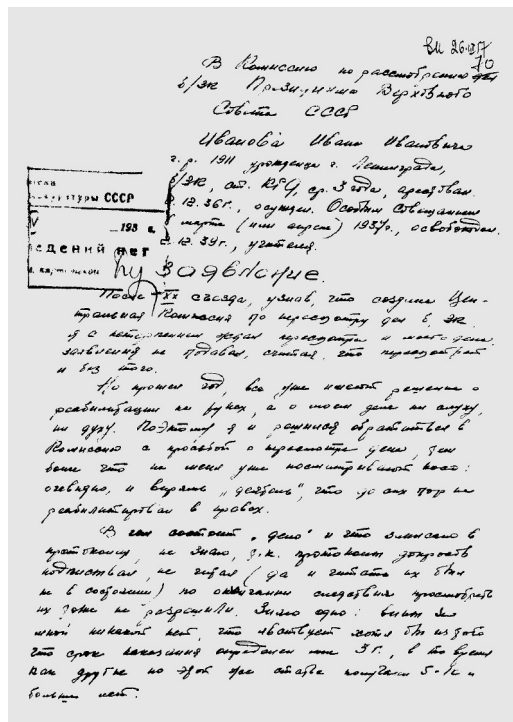 ВИ 26.
70
В Комиссию по рассмотрению дел
б/зк Президиума Верховного
Совета СССР
Иванова Ивана Ивановича
г. р. 1911 урожденца г. Ленинграда,
б/зк, ст. КРД, ср. 3 года, арестован.
12.36г., осужден. Особым Совещанием
марта (или апреля) 1937г., освобожден.
12.39г., учителя.
СССР
195 г.
ведений нет
Заявление.
После XX съезда, узнав, что создана Цен-
тральная Комиссия по пересмотру дел б. зк
я с нетерпением ждал пересмотра и моего дела,
заявления не подавал, считая, что пересмотрят
и без того.
Но прошел год, все уже имеют решение о
реабилитации на руках, а о моем деле ни слуху,
ни духу. Поэтому я и решился обратиться в
Комиссию с просьбой о пересмотре дела, тем
более что на меня уже посматривают косо:
очевидно, и впрямь „деятель", что до сих пор не
реабилитирован в правах.
В чем состоит „дело" и что записано в
протоколах, не знаю, т.к. протоколы допросов
подписывал, не читая (да и читать их был
не в состоянии) по окончании следствия просмотреть
их тоже не разрешили. Знаю одно: вины за
мной никакой нет, что явствует хотя бы из того
что срок наказания определен мне 3 г., в то время
как другие по этой же статье получали 5-10 и
больше лет.